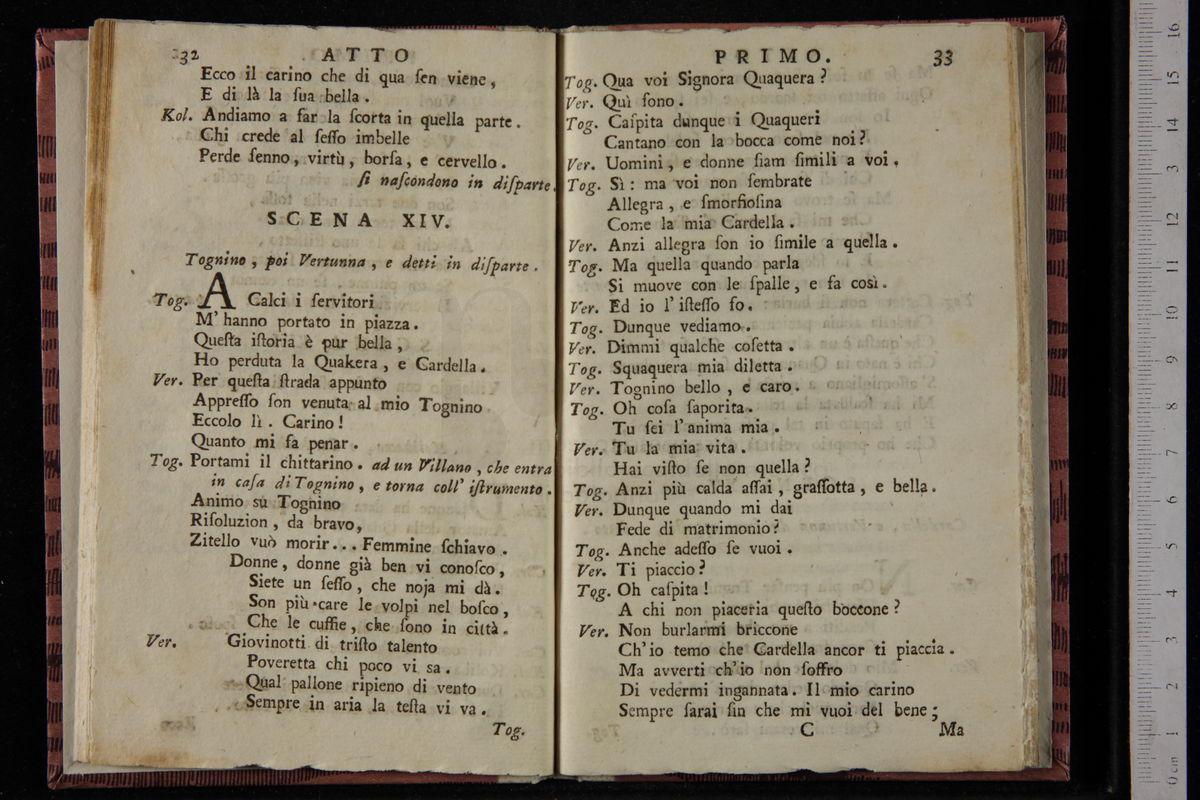 32 ATTO
Ecco il carino che di qua ſen viene,
E di là la ſua bella.
Kol. Andiamo a far la ſcorta in quella parte.
Chi crede al ſeſſo imbelle
Perde ſenno, virtù, borſa, e cervello.
ſi naſcondono in diſparte.
SCENA XIV.
Tognino, poi Vertunna, e detti in diſparte.
Tog. A Calci i ſervitori
M' hanno portato in piazza.
Queſta iſtoria è pur bella,
Ho perduta la Quakera, e Cardella.
Ver. Per queſta ſtrada appunto
Appreſſo ſon venuta al mio Tognino
Eccolo lì. Carino!
Quanto mi fa penar.
Tog. Portami il chittarino. ad un Villano, che entra
in caſa di Tognino, e torna coll' iſtrumento.
Animo su Tognino
Riſoluzion, da bravo,
Zitello vuò morir... Femmine ſchiavo.
Donne, donne già ben vi conoſco,
Siete un ſeſſo, che noja mi dà.
Son più care le volpi nel boſco,
Che le cuffie, che ſono in città.
Ver. Giovinotti di triſto talento
Poveretta chi poco vi sa.
Qual pallone ripieno di vento
Sempre in aria la teſta vi va.
Tog.
PRIMO. 33
Tog. Qua voi Signora Quaquera?
Ver. Quì ſono.
Tog. Caſpita dunque i Quaqueri
Cantano con la bocca come noi?
Ver. Uomini, e donne ſiam ſimili a voi.
Tog. Sì: ma voi non ſembrate
Allegra, e ſmorfioſina
Come la mia Cardella.
Ver. Anzi allegra ſon io ſimile a quella.
Tog. Ma quella quando parla
Si muove con le ſpalle, e fa così.
Ver. Ed io l' iſteſſo fo.
Tog. Dunque vediamo.
Ver. Dimmi qualche coſetta.
Tog. Squaquera mia diletta.
Ver. Tognino bello, e caro.
Tog. Oh coſa ſaporita.
Tu ſei l'anima mia.
Ver. Tu la mia vita.
Hai viſto ſe non quella?
Tog. Anzi più calda aſſai, graſſotta, e bella.
Ver. Dunque quando mi dai
Fede di matrimonio?
Tog. Anche adeſſo ſe vuoi.
Ver. Ti piaccio?
Tog. Oh caſpita!
A chi non piaceria queſto boccone?
Ver. Non burlarmi briccone
Ch'io temo che Cardella ancor ti piaccia.
Ma avverti ch'io non ſoffro
Di vedermi ingannata. Il mio carino
Sempre ſarai ſin che mi vuoi del bene;
C Ma
0 cm 1 2 3 4 5 6 7 8 9 10 11 12 13 14 15 16